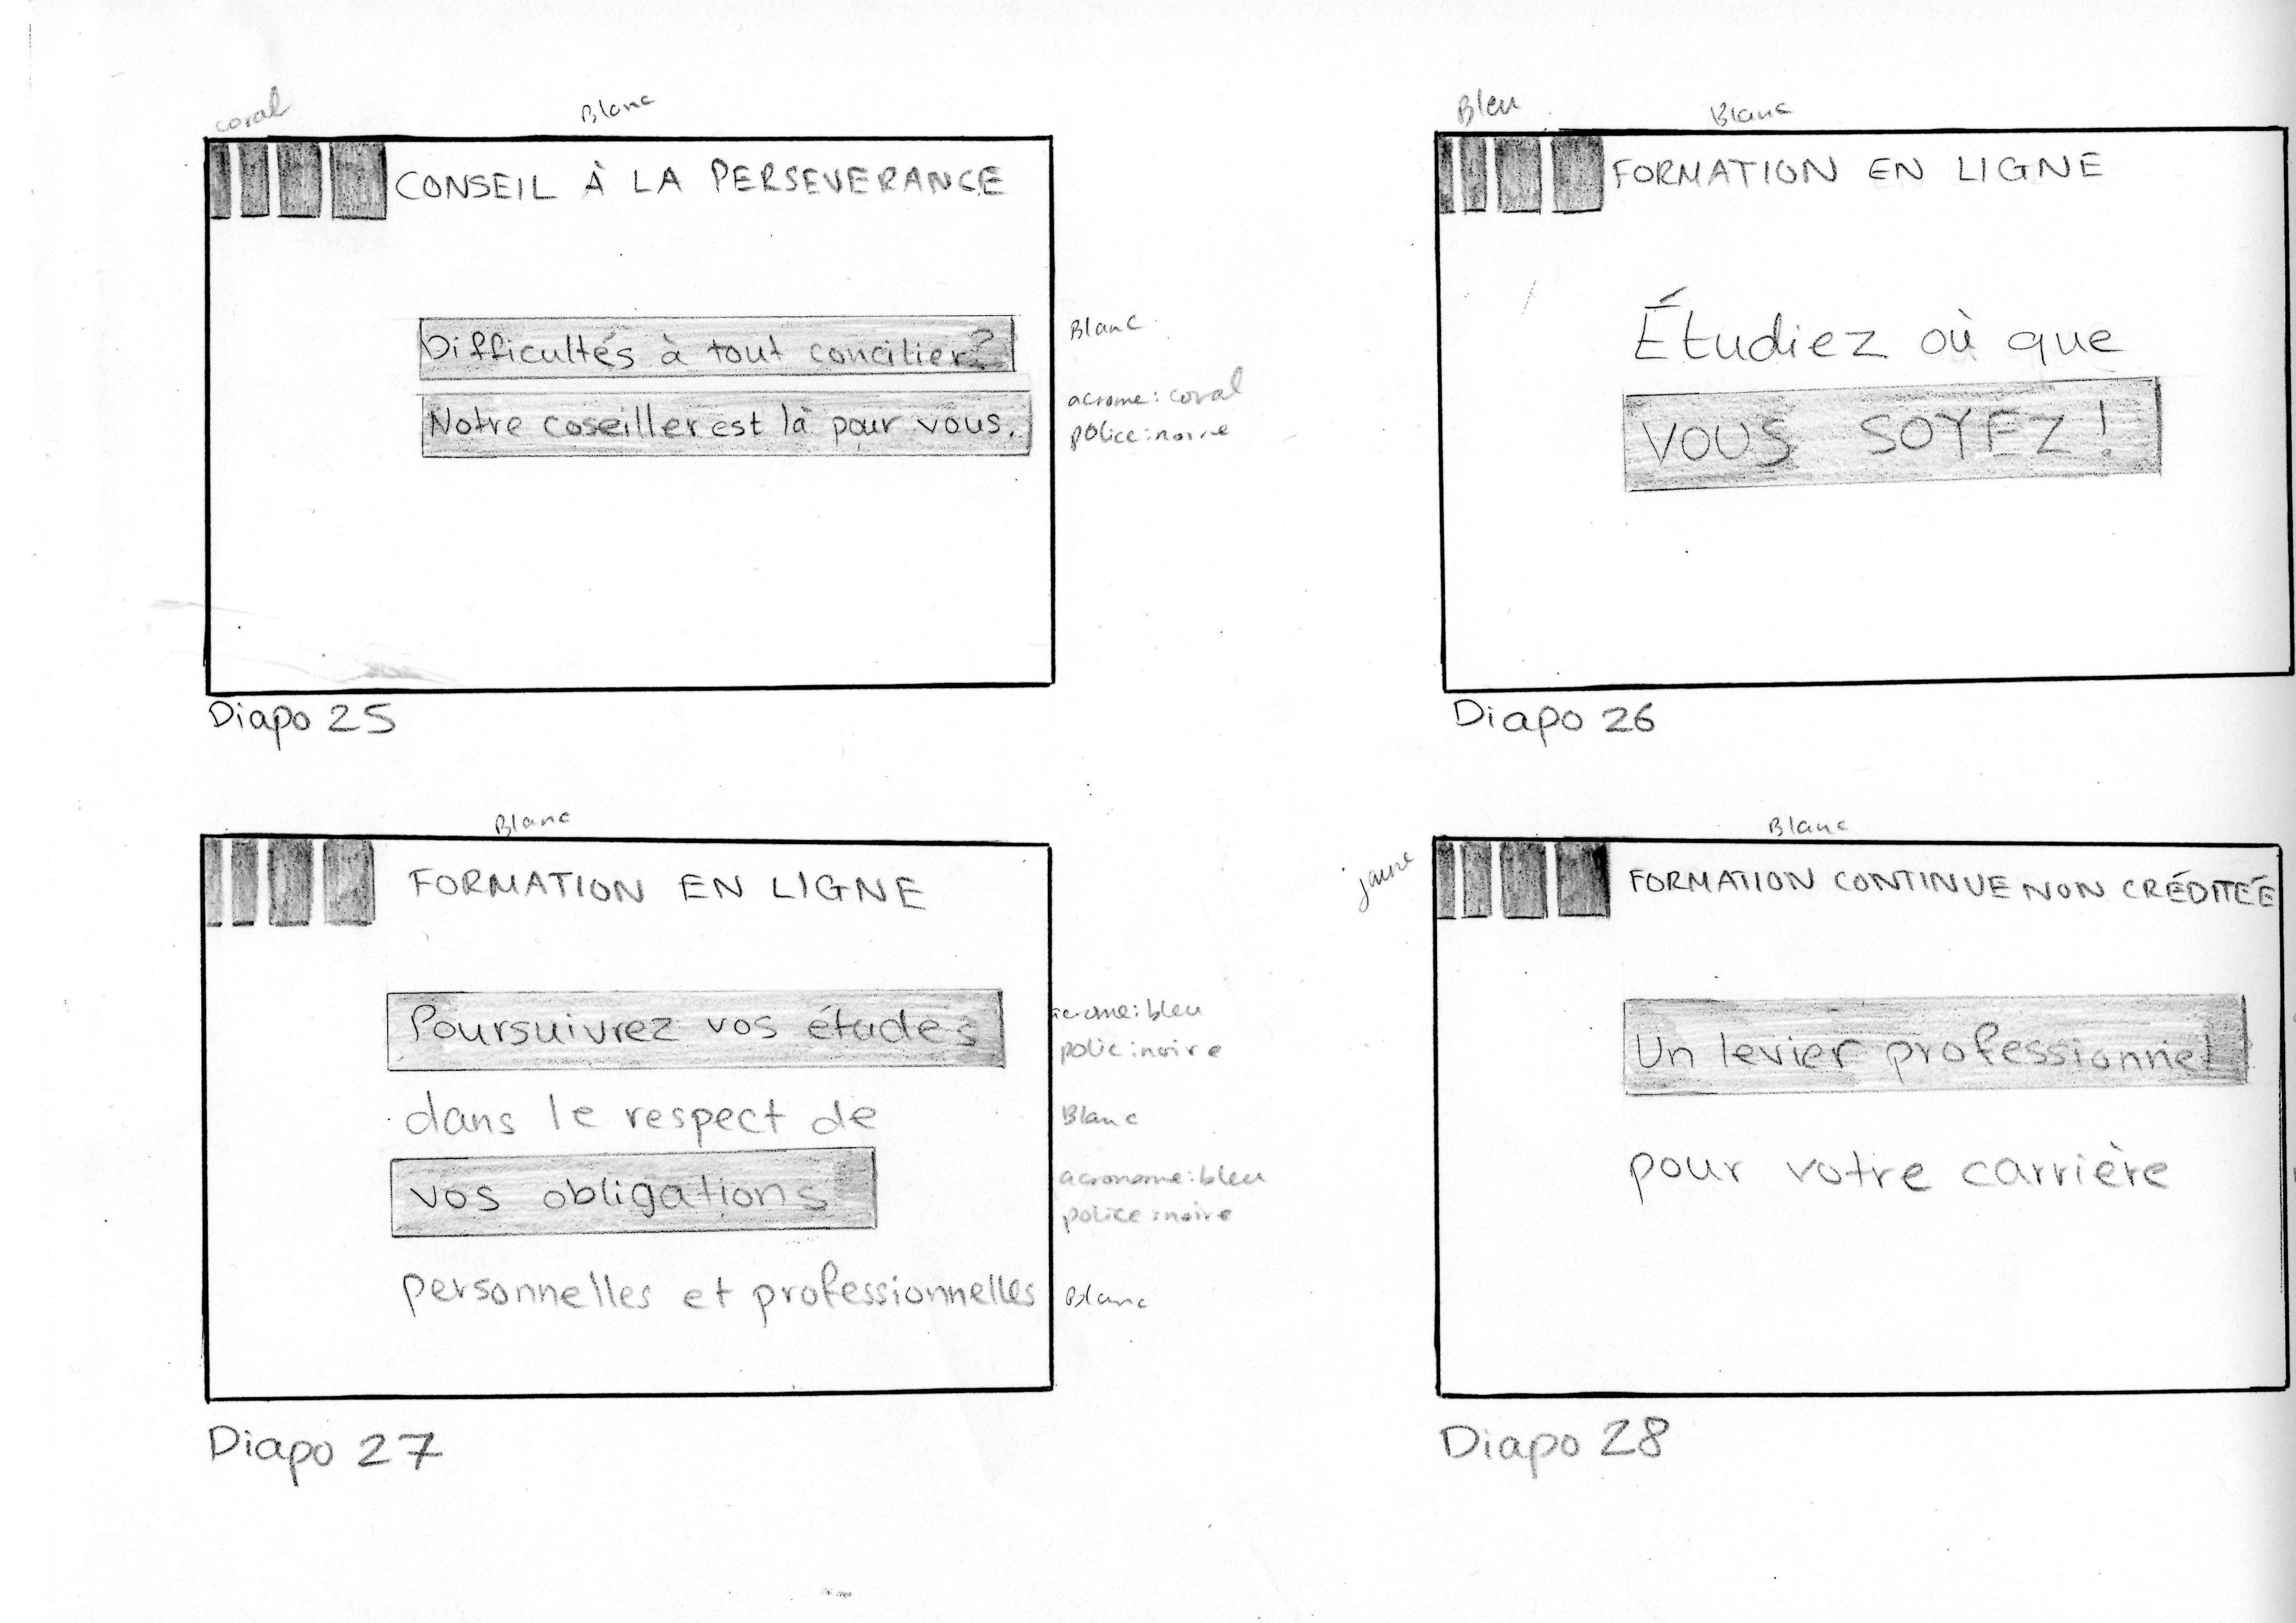 coral
Blanc
CONSEIL À LA PERSEVERANCE
Difficultés à tout concilier?
Blanc
Notre coseiller est là pour vous.
acrome: coral
police: noire
Diapo 25
Bleu
Blanc
FORMATION EN LIGNE
Étudiez où que
VOUS SOYEZ!
Diapo 26
Blanc
FORMATION EN LIGNE
Poursuivrez vos études
acrome: bleu
polic: noire
dans le respect de
Blanc
vos obligations
acronome: bleu
police: noire
personnelles et professionnelles
Blanc
Diapo 27
jaune
Blanc
FORMATION CONTINUE NON CRÉDITÉE
Un levier professionnel
pour votre carrière
Diapo 28